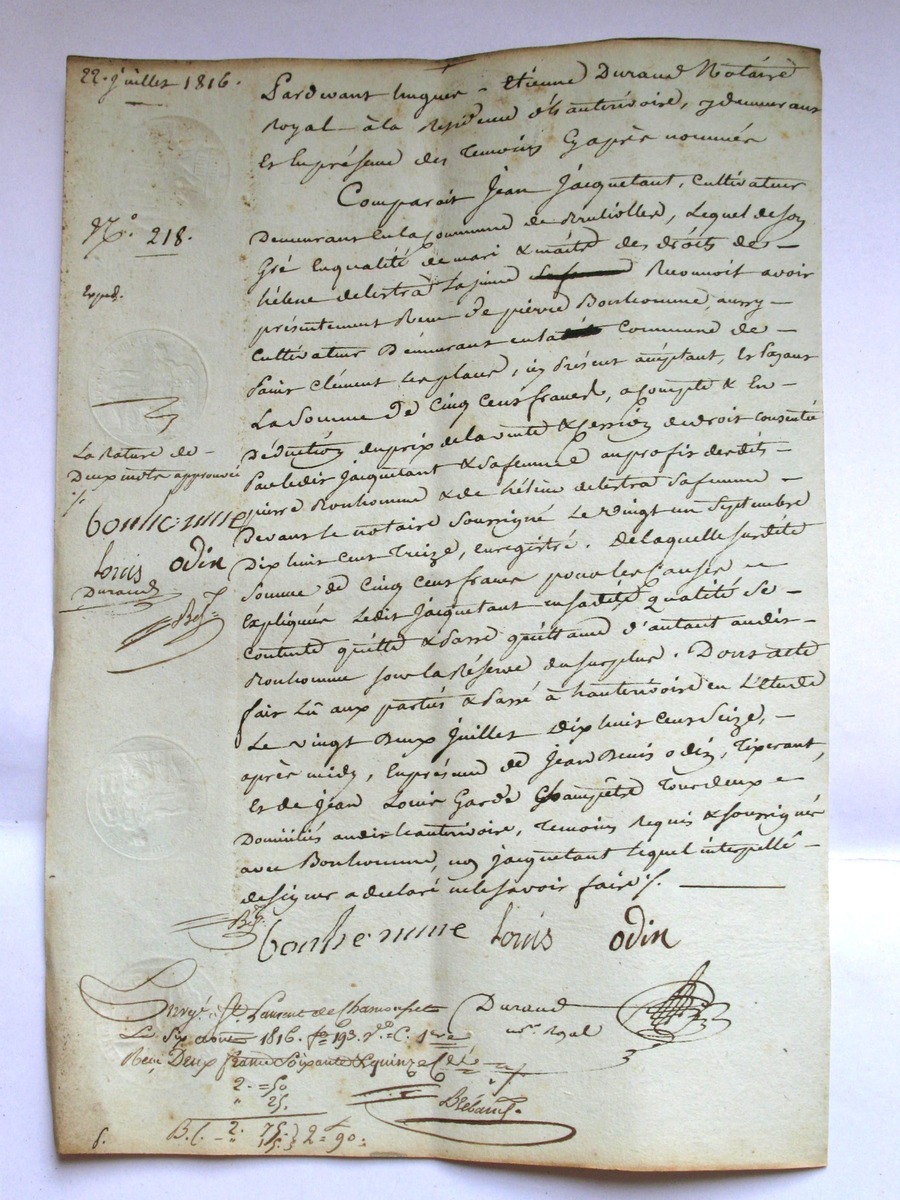 22. juillet 1816.
Pardevant hugues - Etienne Durand Notaire
Royal - à la Residence d'hauterivoire, y demeurant
Et En présence des Temoins Cy après nommés
Comparait Jean Jacquetant, Cultivateur
N.o 218.
Demeurant en la Commune de Brullioles, Lequel de son
Gré En qualité de mari & maitre des droits de -
Exped.
hélene delestra La jeune Reconnoit avoir
présentement Reçu de pierre Bonhomme, aussy -
Cultivateur Demeurant en la Commune de -
Saint Clément les places, icy présent acceptant, Et payant
La Somme De Cinq Cent francs, a Compte & En -
La Rature de -
Deux mots approuvée
Déduction du prix de la vente & Cession de droit consentie
Par ledit Jacquetant & Sa femme au profit desdits -
pierre Bonhomme & de hélène delestra Sa femme -
bonhomme
Devant le notaire Soussigné Le vingt un Septembre
louis odin
Durand
Dix huit Cent Treize, enregistré. De laquelle susdite
Somme de Cinq Cent francs pour les Causes -
Expliquées Ledit Jacquetant en sadite qualité Se -
Contente quitte & Passe quittance d'autant audit -
Bonhomme sous la Réserve du surplus. Dont acte
fait Lû aux parties & Passé à hauterivoire en L'Etude
Le vingt Deux Juillet Dix huit Cent Seize, -
après midy, En présence de Jean Denis odin, Tisserant,
Et de Jean Louis Garde Champêtre Tous deux -
Domiciliés audit hauterivoire, Temoins Requis & soussignés
avec Bonhomme, non Jacquetant lequel interpellé -
de signer a declaré ne le savoir faire ./.
bonhomme louis odin
Enregé. St. Laurent de Chamousset
Durand
nre. Royal
Le Six aout 1816. fo 193. Vo C. 1ere
Reçu Deux francs Soixante & quinze
2. = 50
" 25.
2. 75.
" 15. } 2 = 90